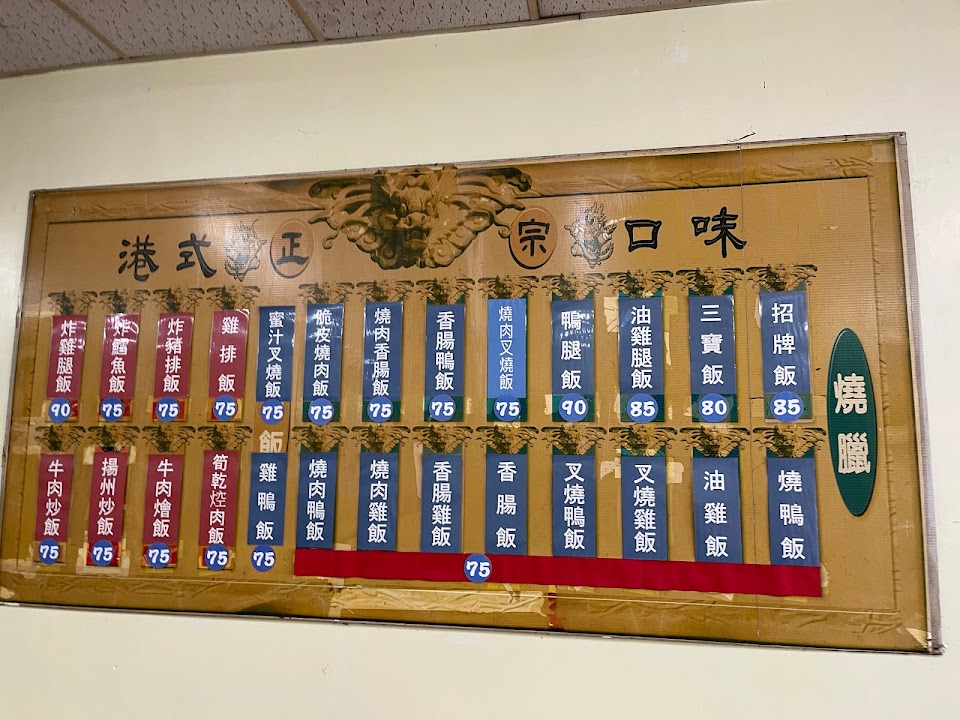 港式正宗口味
燒臘
招牌飯
85
三寶飯
80
油雞腿飯
85
鴨腿飯
90
燒肉叉燒飯
75
香腸鴨飯
75
燒肉香腸飯
75
脆皮燒肉飯
75
蜜汁叉燒飯
75
飯
雞排飯
75
炸豬排飯
75
炸鱈魚飯
75
炸雞腿飯
90
燒鴨飯
油雞飯
叉燒雞飯
叉燒鴨飯
香腸飯
香腸雞飯
燒肉雞飯
燒肉鴨飯
75
雞鴨飯
75
筍乾焢肉飯
75
牛肉燴飯
75
揚州炒飯
75
牛肉炒飯
75